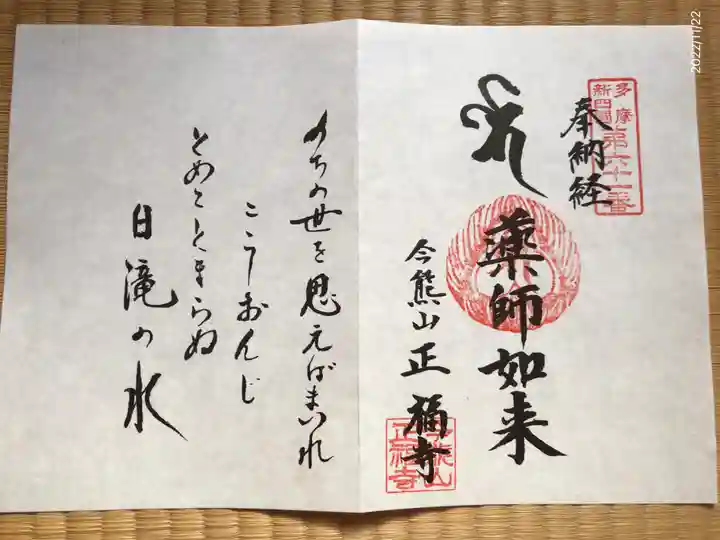 2022/11/22
多摩
新四国
第六十一番
奉納経
薬師如来
今熊山 正福寺
今熊山
正福寺
のちの世を思えばまいれ
こうおんじ
とめてとまらぬ
白滝の水